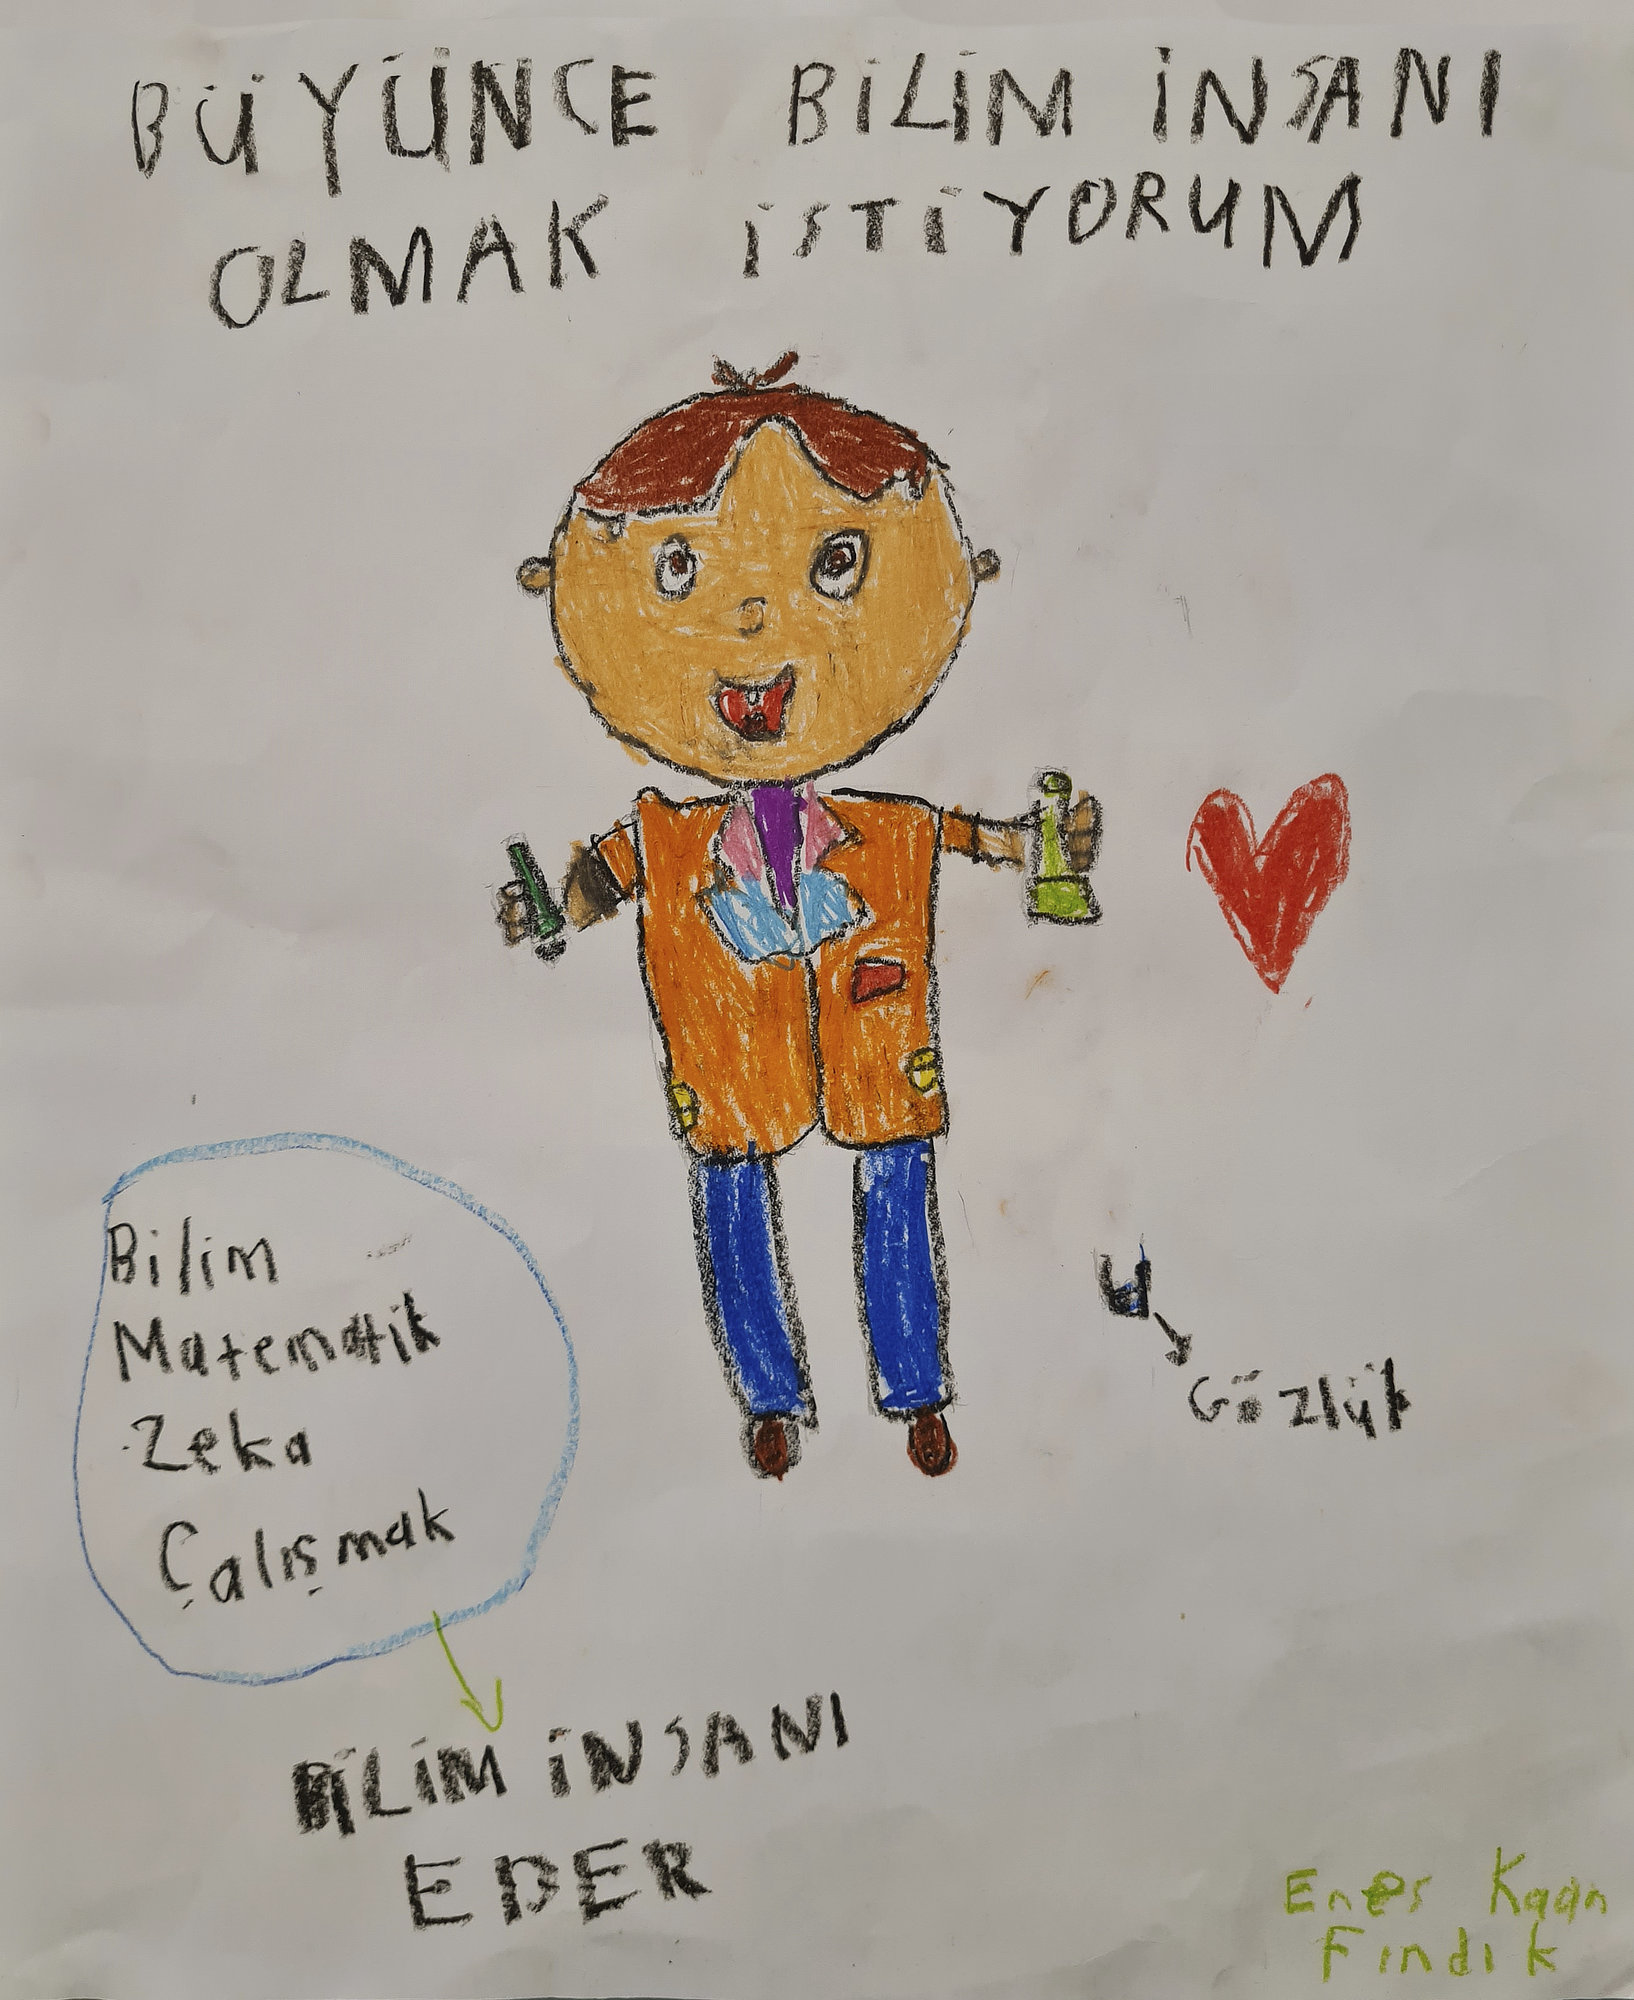 BÜYÜNCE BİLİM İNSANI
OLMAK İSTİYORUM
Bilim
Matematik
Zeka
Çalışmak
Gözlük
BİLİM İNSANI
EDER
Enes Kaan
Fındık